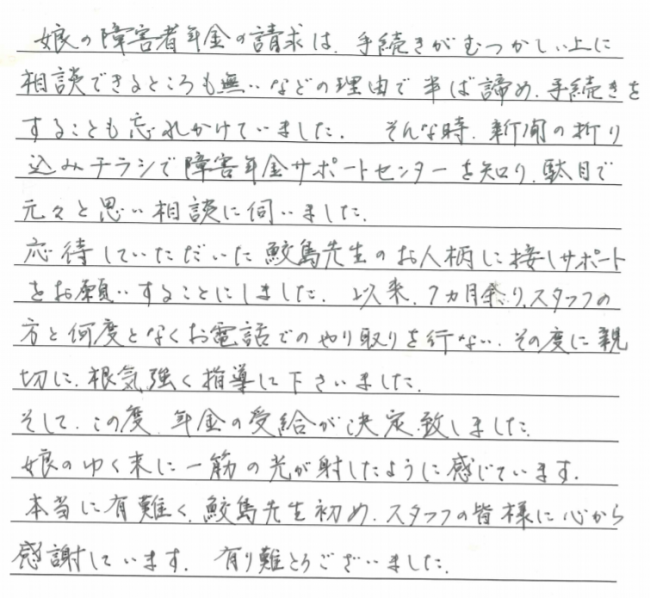 娘の障害者年金の請求は、手続きがむつかしい上に
相談できるところも無いなどの理由で半ば諦め、手続きを
することも忘れかけていました。 そんな時、新聞の折り
込みチラシで障害年金サポートセンターを知り、駄目で
元々と思い相談に伺いました。
応待していただいた鮫島先生のお人柄に接しサポート
をお願いすることにしました。以来、7カ月余り、スタッフの
方と何度となくお電話でのやり取りを行ない、その度に親
切に、根気強く指導して下さいました。
そして、この度、年金の受給が決定致しました。
娘のゆく末に一筋の光が射したように感じています。
本当に有難く、鮫島先生初め、スタッフの皆様に心から
感謝しています。 有り難とうございました。